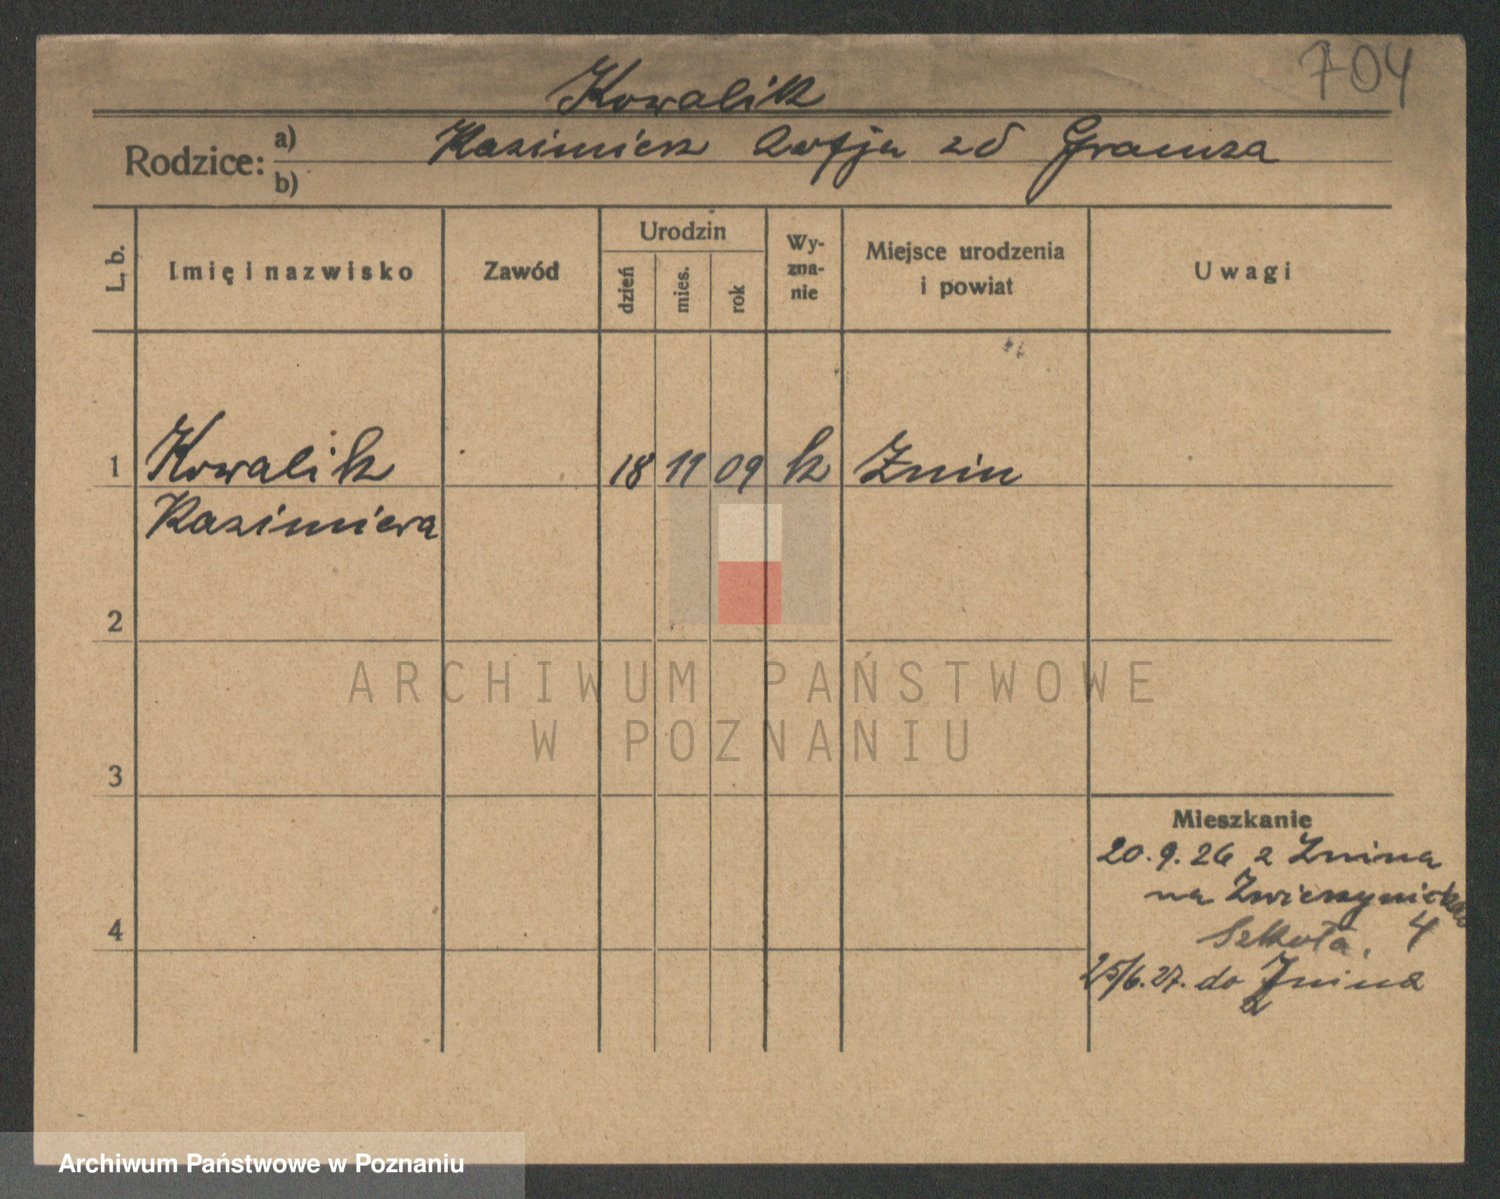 704
Kowalik
Rodzice: a) Kazimierz Zofja zd Gramza
b)
L. b. Imię i nazwisko Zawód Urodzin dzień mies. rok Wyzna-nie Miejsce urodzenia i powiat Uwagi
1 Kowalik 18 11 09 k Żnin
Kazimiera
2
ARCHIWUM PAŃSTWOWE
W POZNANIU
3
Mieszkanie
20.9.26 z Żnina
na Zwierzyniecką
4 Szkoła. 4
25/6.27. do Żnina
Archiwum Państwowe w Poznaniu